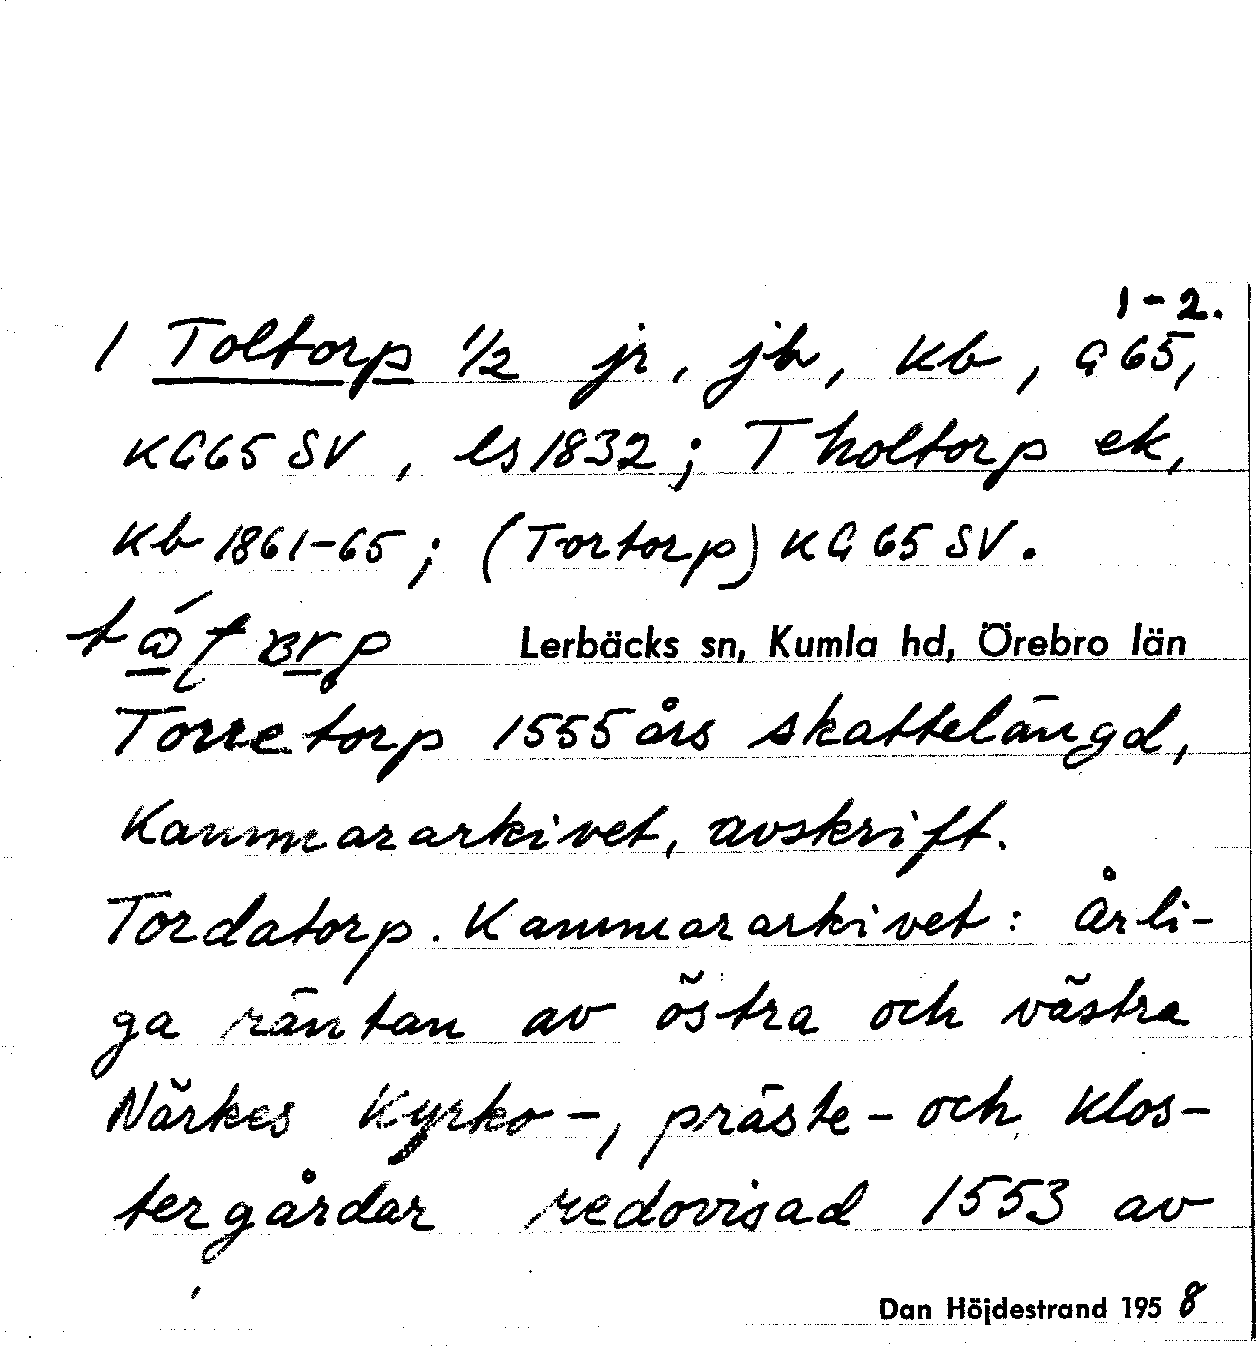 1-2.
1 Toltorp 1/2 jr, jb, kb, G65,
KG65 SV, ls 1832; Tholtorp ek,
kb 1861-65; (Tortorp) KG65 SV.
Lerbäcks sn, Kumla hd, Örebro län
Torretorp 1555 års skattelängd,
Kammararkivet, avskrift.
Tordatorp. Kammararkivet: Årli-
ga räntan av östra och västra
Närkes Kyrko-, präste- och klos-
tergårdar redovisad 1553 av
Dan Höjdestrand 1958